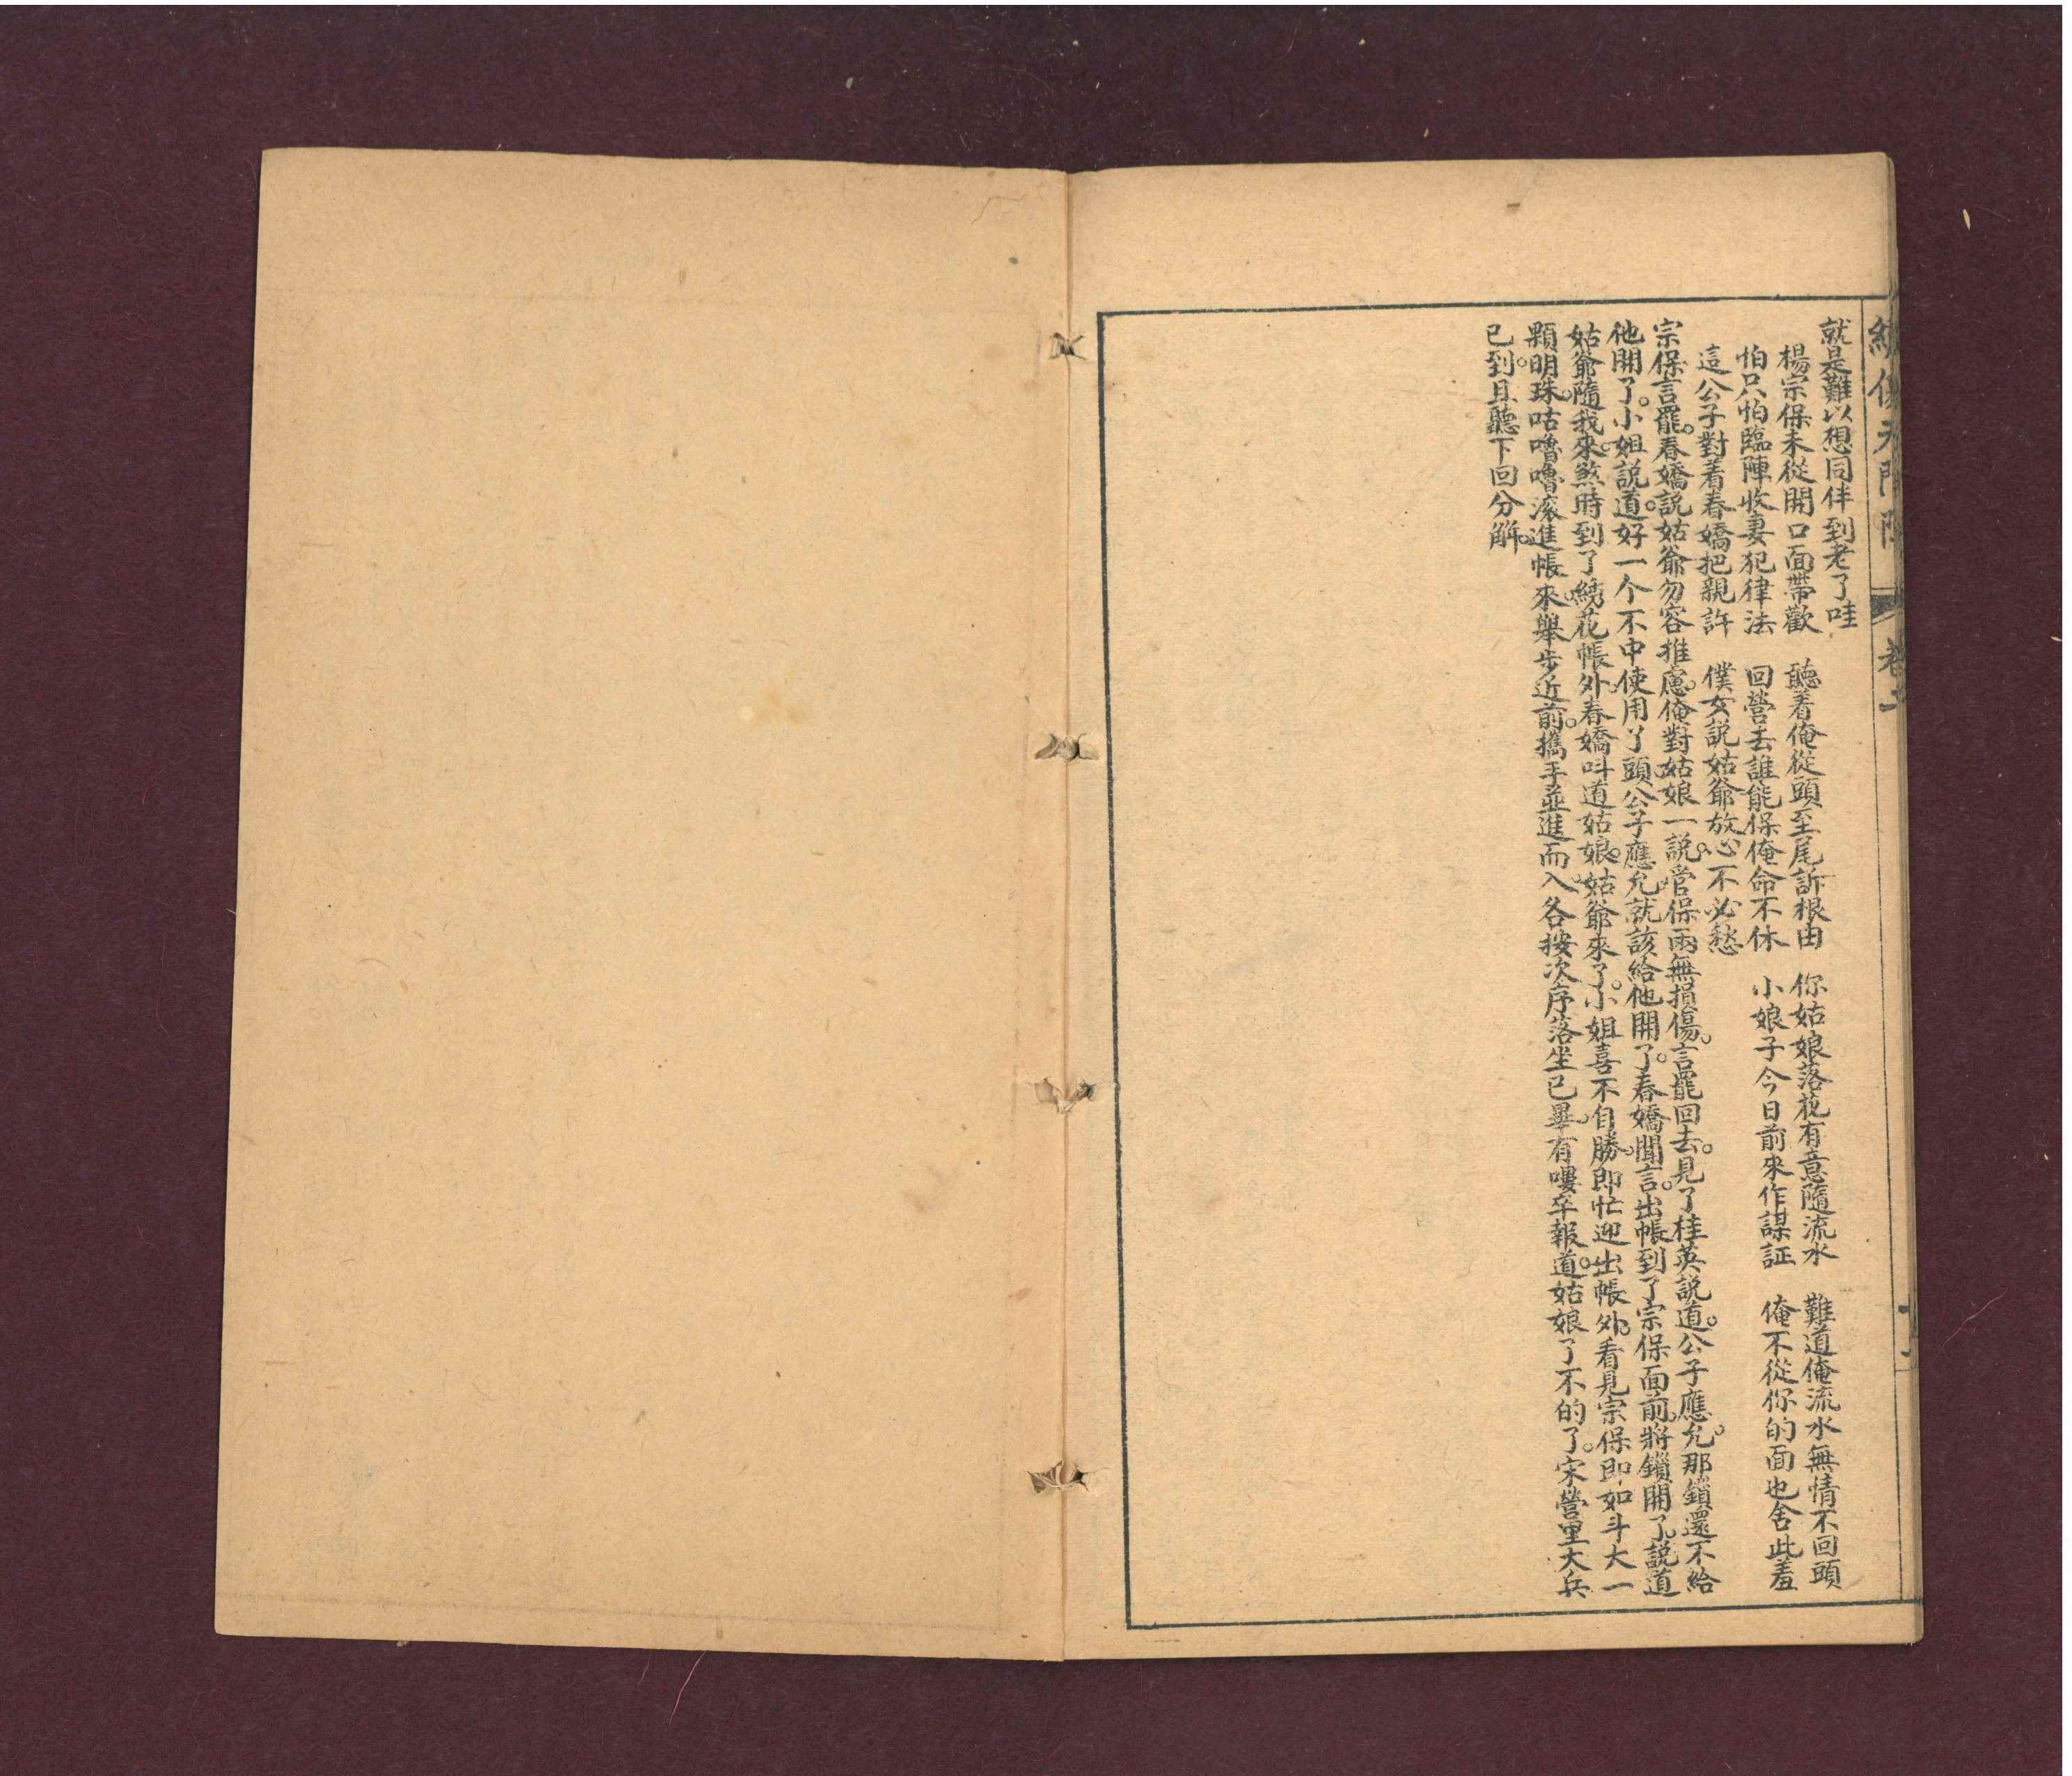 就是難以想同伴到老了哇
楊宗保未從開口面帶歡　聽着俺從頭至尾訴根由　你姑娘落花有意隨流水　難道俺流水無情不回頭
怕只怕臨陣收妻犯律法　回營去誰能保俺命不休　小娘子今日前來作謀証　俺不從你的面也舍此羞
這公子對着春嬌把親許　僕女說姑爺放心不必愁
宗保言罷。春嬌説姑爺勿容推慮。俺對姑娘一説。管保兩無損傷。言罷回去。見了桂英説道。公子應允。那鎖還不給
他開了。小姐説道。好一个不中使用丫頭。公子應允。就該給他開了。春嬌聞言。出帳到了宗保面前。將鎖開了。説道
姑爺隨我來。煞時到了綉花帳外。春嬌叫道姑娘。姑爺來了。小姐喜不自勝。即忙迎出帳外。看見宗保。即如斗大一
顆明珠。咕嚕嚕滾進帳來。舉步近前。攜手並進而入。各按次序落坐已畢。有嘍卒報道。姑娘了不的了。宋營里大兵
已到。且聽下回分解。
天門陣
卷二